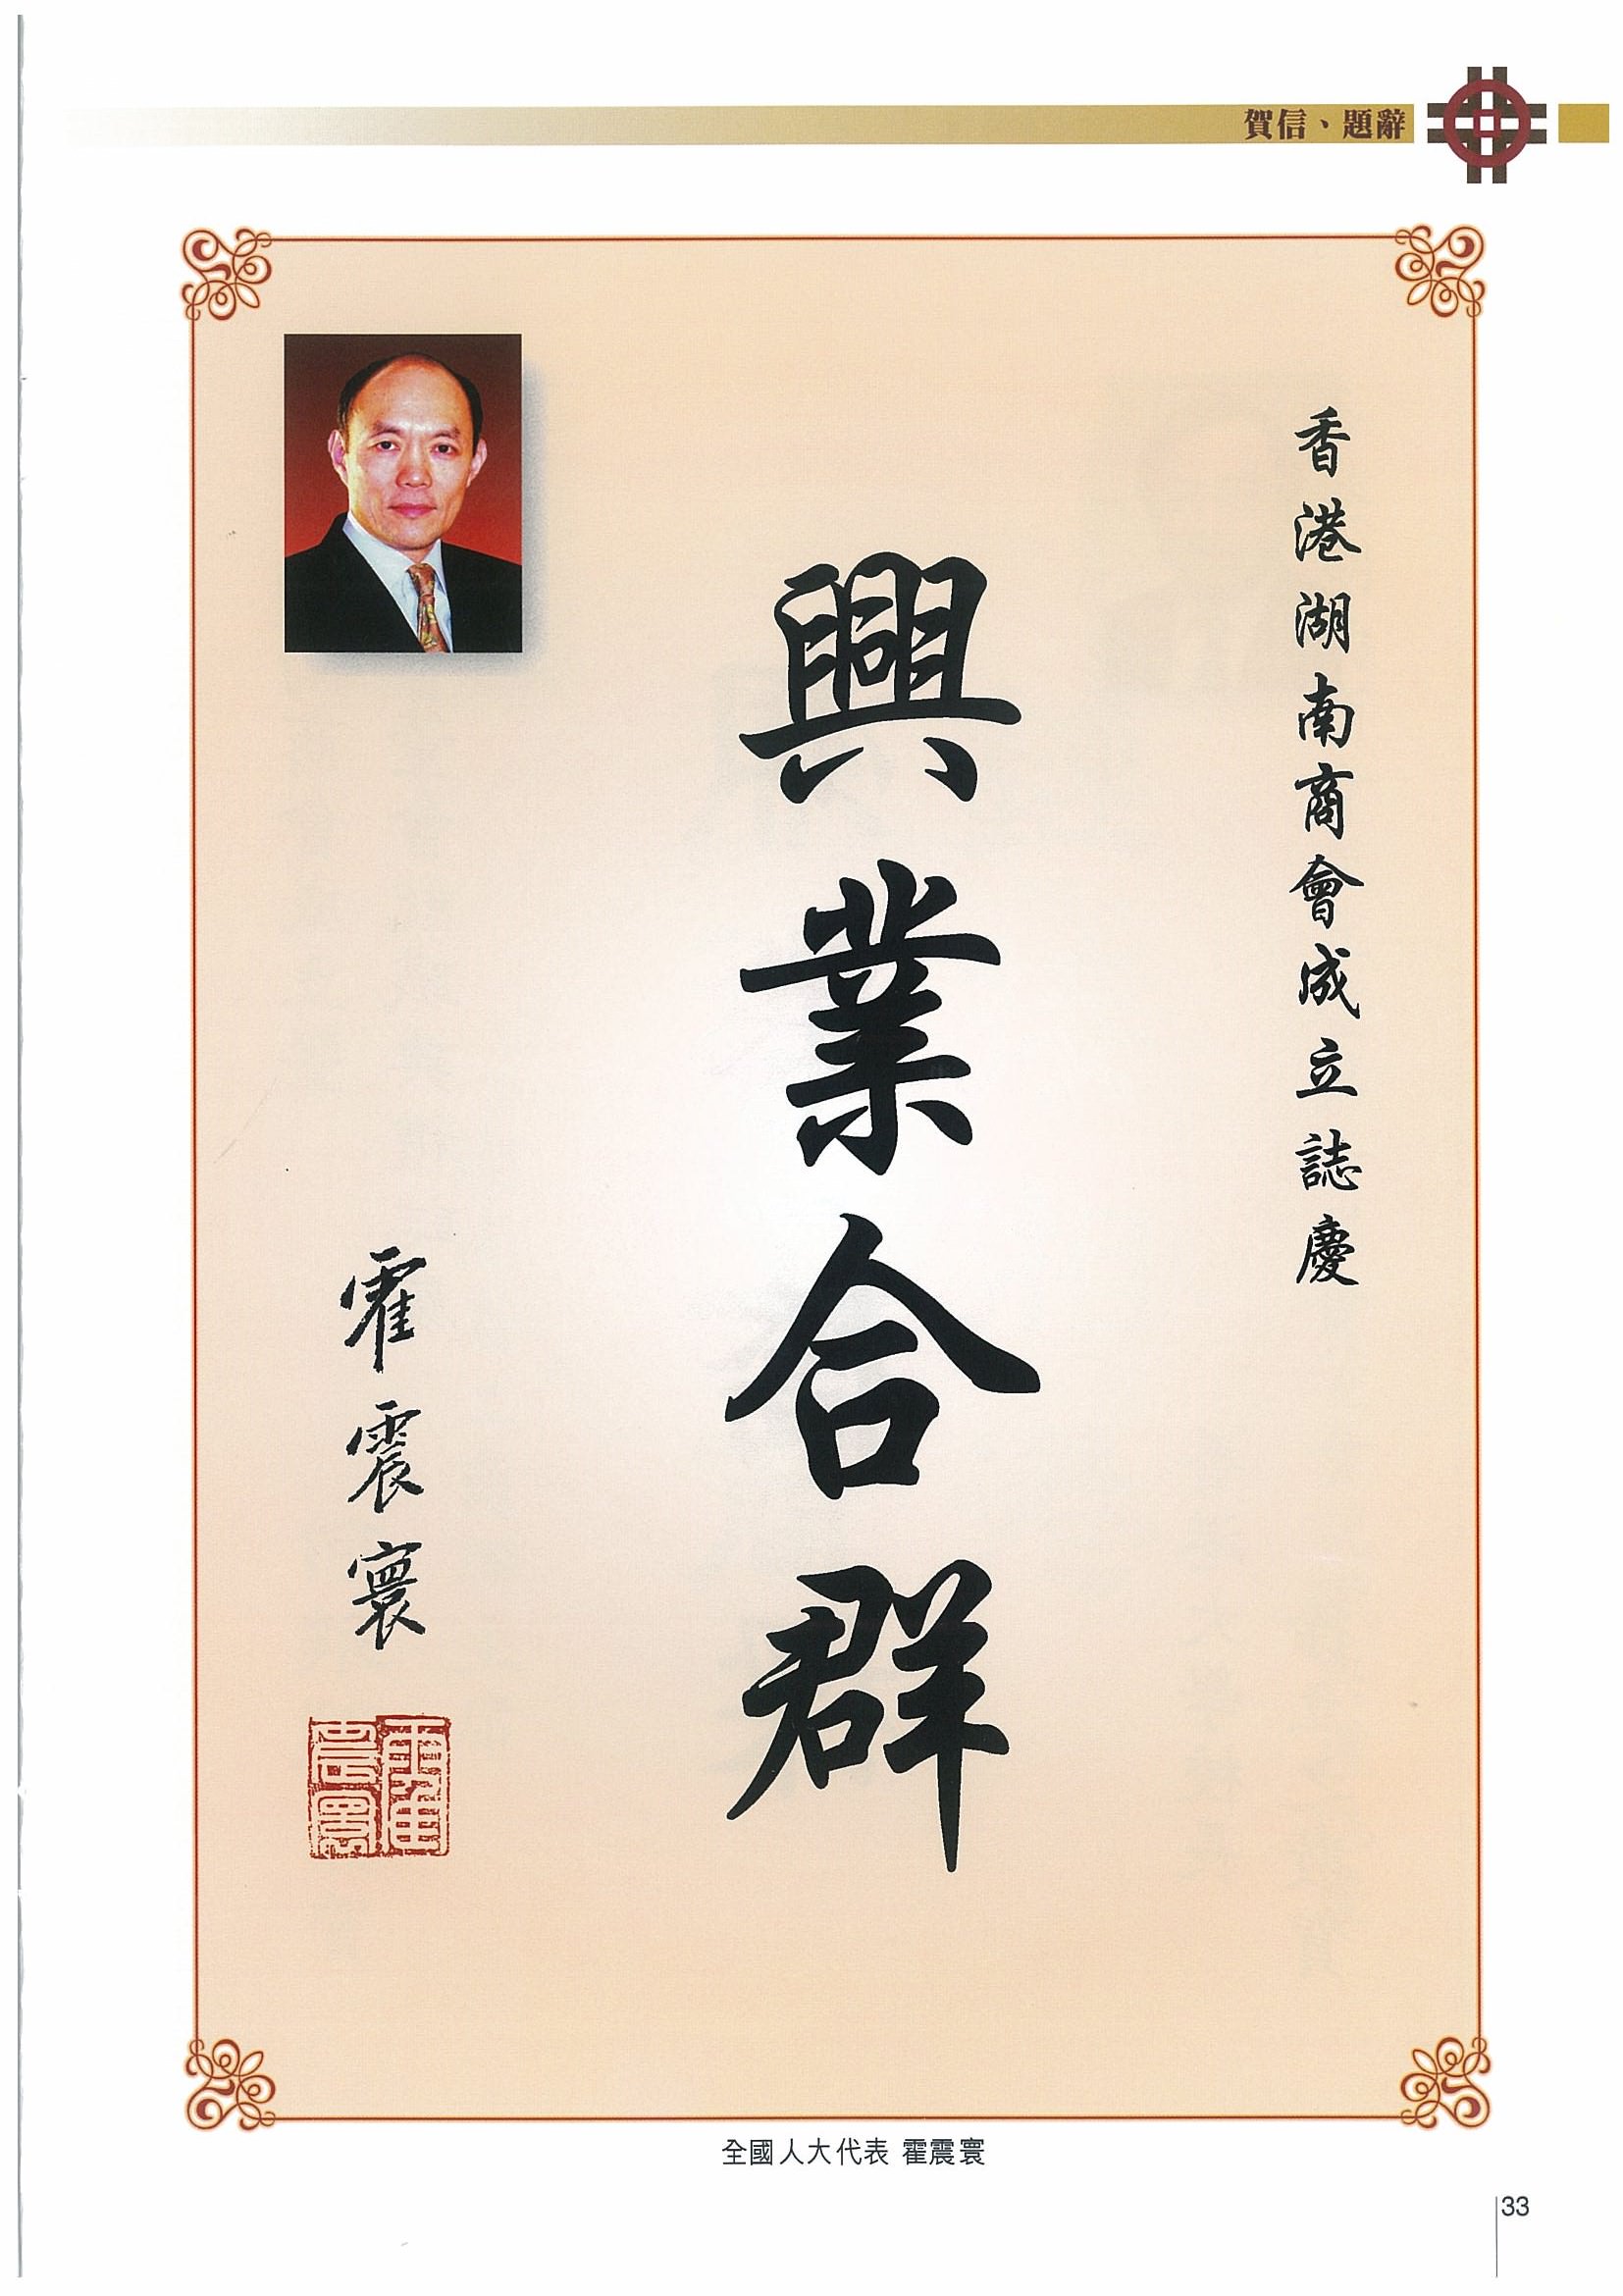 賀信、題辭
香港湖南商會成立誌慶
興業合群
霍震寰
全國人大代表 霍震寰
33